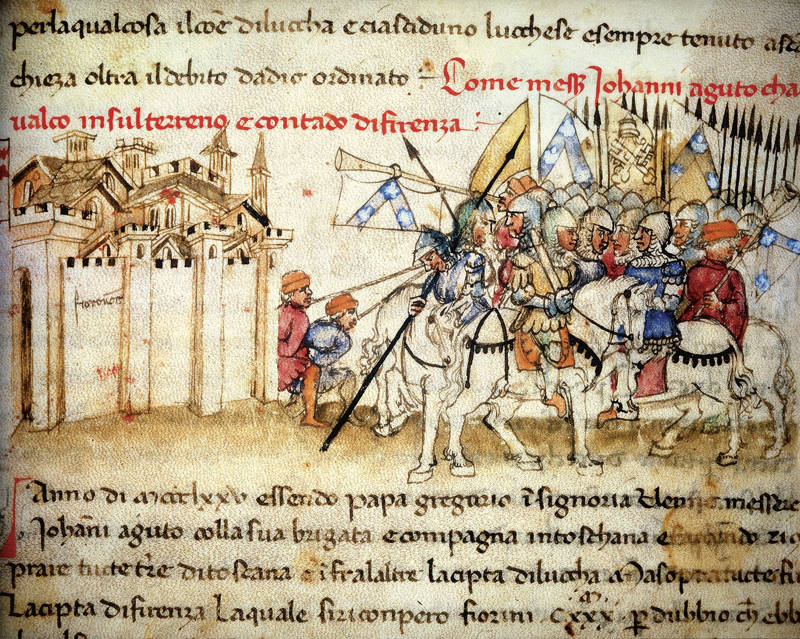 perlaqualcosa ilcoē diluccha eciaschduno lucchese esempre tenuto
chieza oltra ildebito dadio ordinato Come mess Johanni aguto cha
ualco insulterreno econtado difirenza
firenze
Anno di mccclxxv essendo papa gregorio ī signoria messere
Johāni aguto collasua brigata ecompagna intoschana
tucte ditoscana eīfralaltre lacipta diluccha
Lacipta difirenza Laquale siriconpero fiorini cxxx p dubbio ch ebb